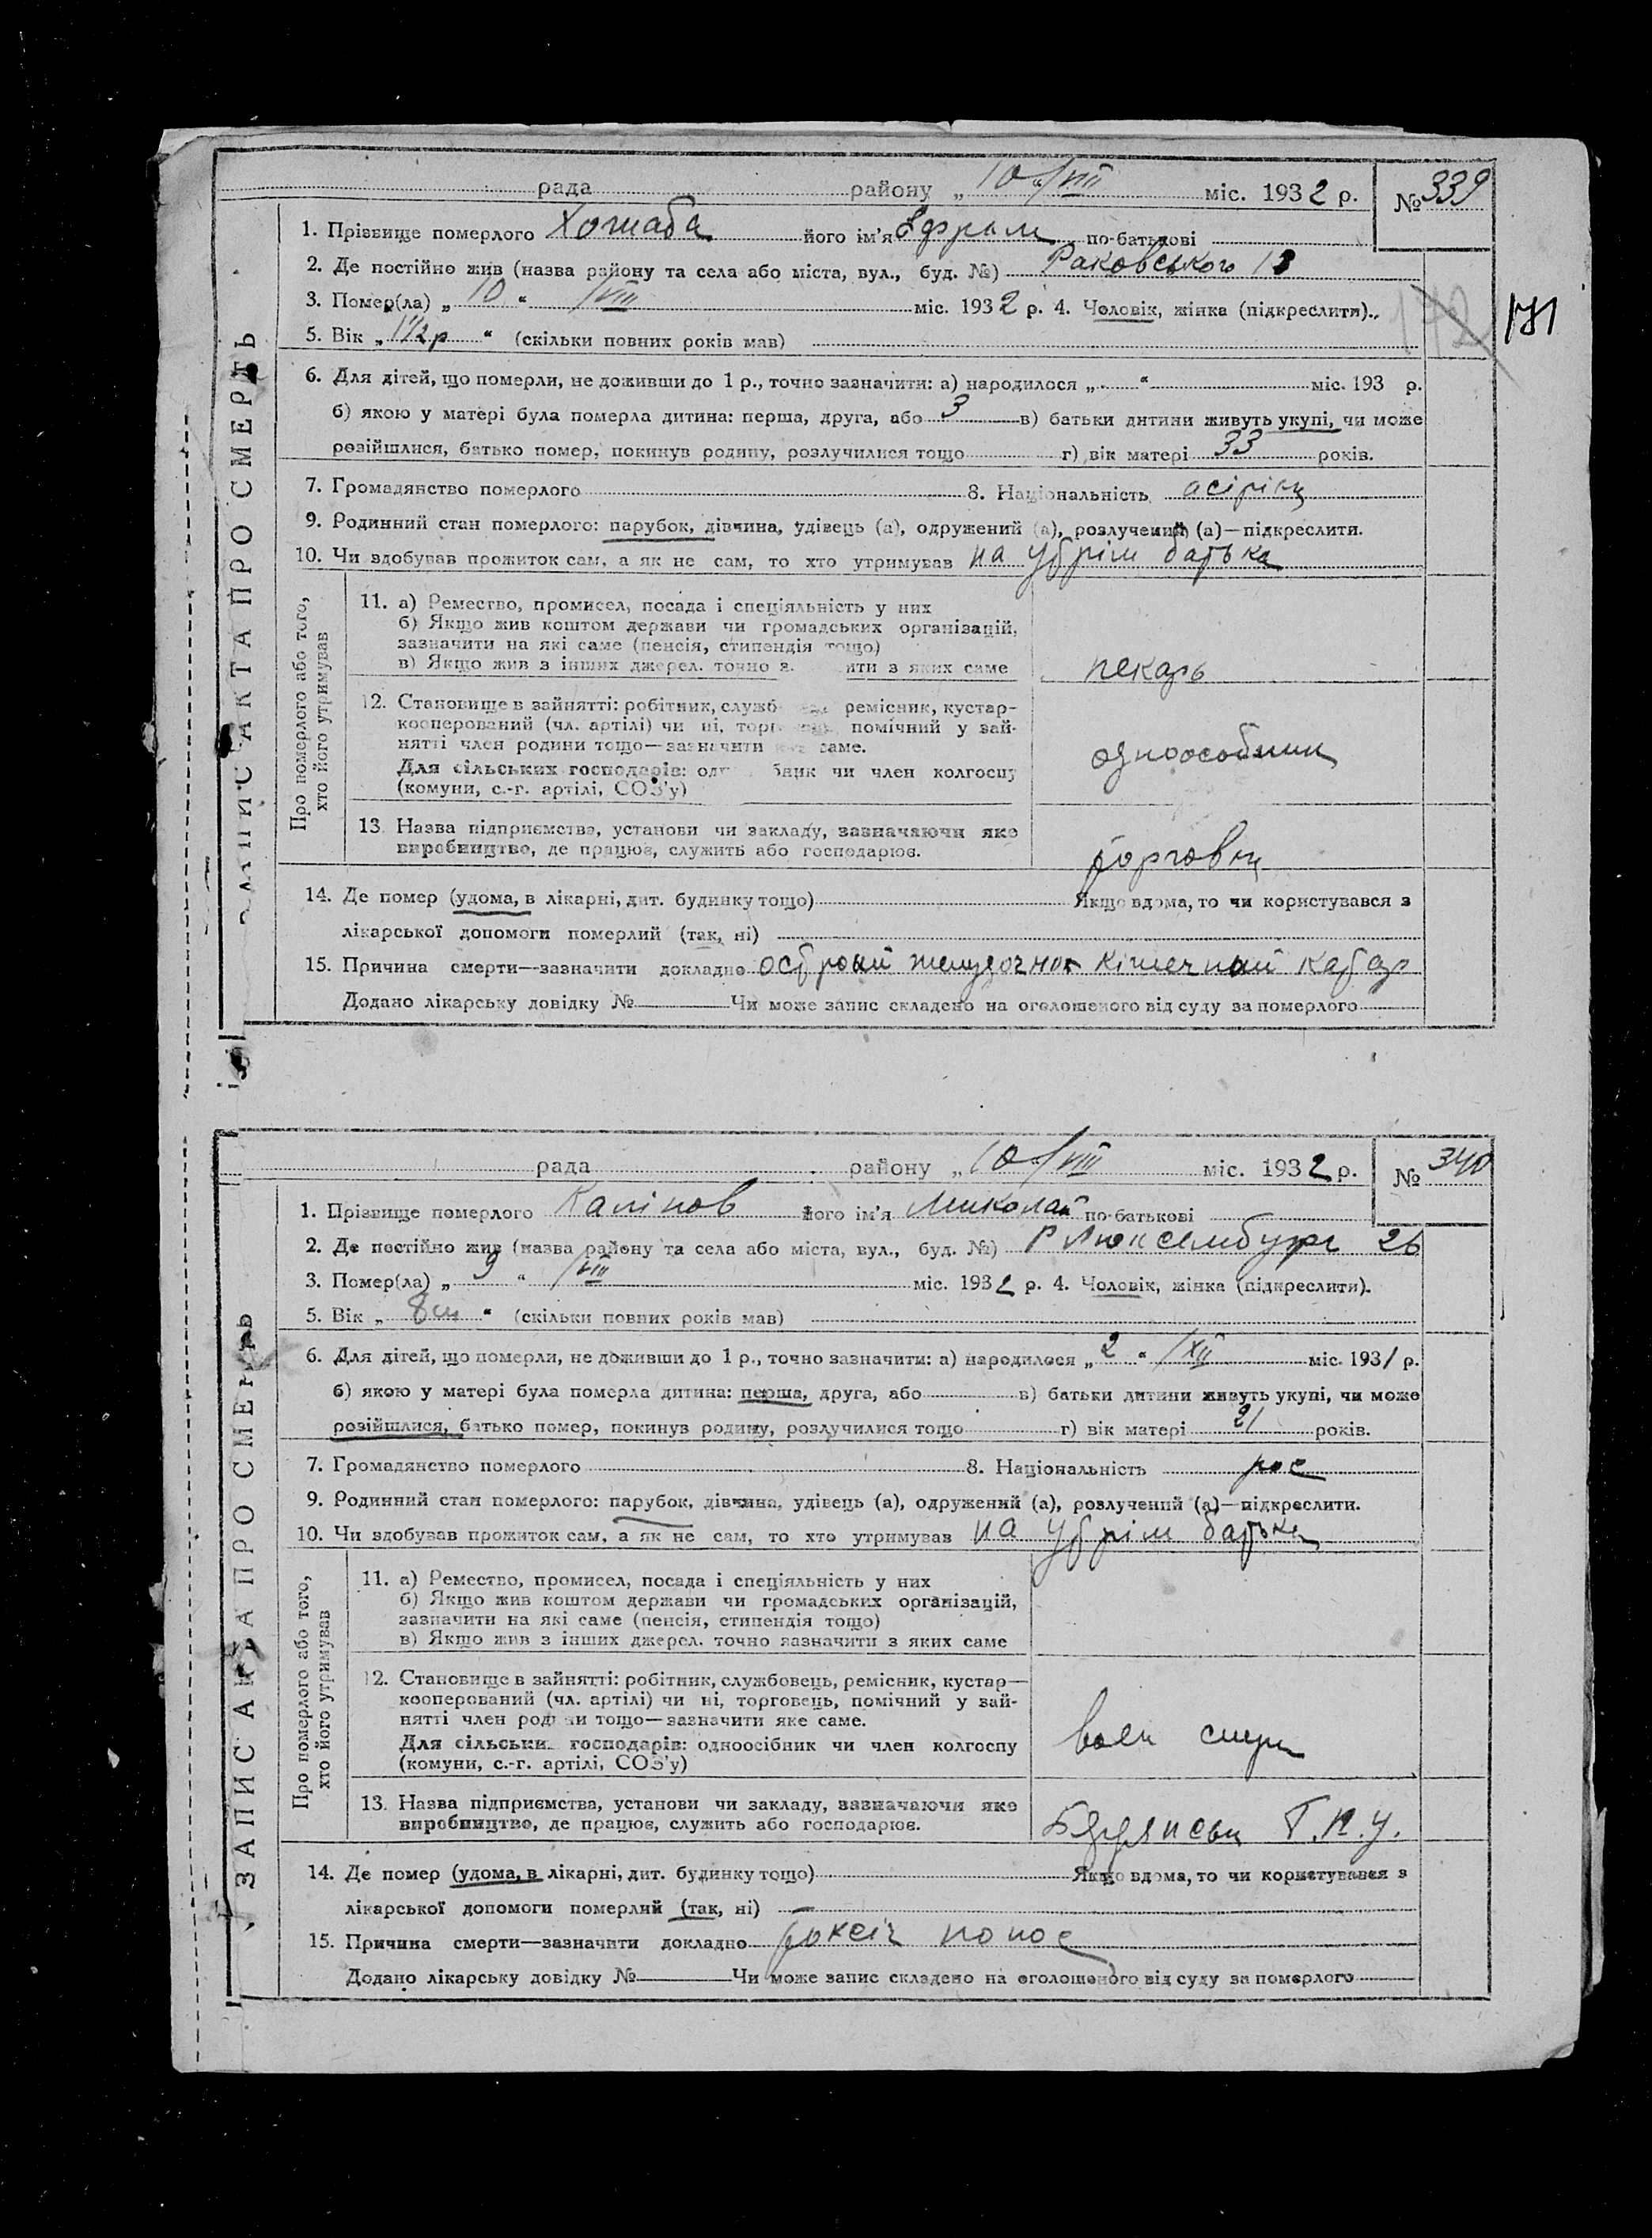 рада району „10“/VIII міс. 1932 р. № 339
1. Прізвище померлого Хошаба його ім'я Ефрем по-батькові
2. Де постійно жив (назва району та села або міста, вул., буд. №) Раковського 13
3. Помер(ла) „10“ /VIII міс. 1932 р. 4. Чоловік, жінка (підкреслити).
171
5. Вік „1 1/2 р“ (скільки повних років мав)
6. Для дітей, що померли, не доживши до 1 р., точно зазначити: а) народилося „ “ міс. 193 р.
б) якою у матері була померла дитина: перша, друга, або 3 в) батьки дитини живуть укупі, чи може
розійшлися, батько помер, покинув родину, розлучилися тощо г) вік матері 33 років.
7. Громадянство померлого 8. Національність асірієц
9. Родинний стан померлого: парубок, дівчина, удівець (а), одружений (а), розлучений (а)—підкреслити.
10. Чи здобував прожиток сам, а як не сам, то хто утримував на утрім батька
ЗАПИС АКТА ПРО СМЕРТЬ
Про померлого або того,
хто його утримував
11. а) Ремество, промисел, посада і спеціяльність у них
б) Якщо жив коштом держави чи громадських організацій,
зазначити на які саме (пенсія, стипендія тощо)
в) Якщо жив з інших джерел. точно з ити з яких саме
пекарь
12. Становище в зайнятті: робітник, служб ремісник, кустар-
кооперований (чл. артілі) чи ні, торг помічний у зай-
нятті член родини тощо—зазначити яке саме.
Для сільських господарів: од бник чи член колгоспу
(комуни, с.-г. артілі, СОЗ'у)
одноособник
13. Назва підприємства, установи чи закладу, зазначаючи яке
виробництво, де працює, служить або господарює.
торговец
14. Де помер (удома, в лікарні, дит. будинку тощо) Якщо вдома, то чи користувався з
лікарської допомоги померлий (так, ні)
15. Причина смерти—зазначити докладно острий желудочно кішечний катар
Додано лікарську довідку № Чи може запис складено на оголошеного від суду за померлого
рада району „10“/VIII міс. 1932 р. № 340
1. Прізвище померлого Калінов його ім'я Миколай по-батькові
2. Де постійно жив (назва району та села або міста, вул., буд. №) Р Люксембург 26
3. Помер(ла) „9“ /VIII міс. 1932 р. 4. Чоловік, жінка (підкреслити).
5. Вік „8 м“ (скільки повних років мав)
6. Для дітей, що померли, не доживши до 1 р., точно зазначити: а) народилося „2“ /XII міс. 1931 р.
б) якою у матері була померла дитина: перша, друга, або в) батьки дитини живуть укупі, чи може
розійшлися, батько помер, покинув родину, розлучилися тощо г) вік матері 21 років.
7. Громадянство померлого 8. Національність рос
9. Родинний стан померлого: парубок, дівчина, удівець (а), одружений (а), розлучений (а)—підкреслити.
10. Чи здобував прожиток сам, а як не сам, то хто утримував на утрім батька
ЗАПИС АКТА ПРО СМЕРТЬ
Про померлого або того,
хто його утримував
11. а) Ремество, промисел, посада і спеціяльність у них
б) Якщо жив коштом держави чи громадських організацій,
зазначити на які саме (пенсія, стипендія тощо)
в) Якщо жив з інших джерел. точно зазначити з яких саме
12. Становище в зайнятті: робітник, службовець, ремісник, кустар—
кооперований (чл. артілі) чи ні, торговець, помічний у зай-
нятті член родини тощо—зазначити яке саме.
Для сільськи господарів: одноосібник чи член колгоспу
(комуни, с.-г. артілі, СОЗ'у)
воен служ
13. Назва підприємства, установи чи закладу, зазначаючи яке
виробництво, де працює, служить або господарює.
Г.П.У.
14. Де помер (удома, в лікарні, дит. будинку тощо) Якщо вдома, то чи користувався з
лікарської допомоги померлий (так, ні)
15. Причина смерти—зазначити докладно токсіч понос
Додано лікарську довідку № Чи може запис складено на оголошеного від суду за померлого